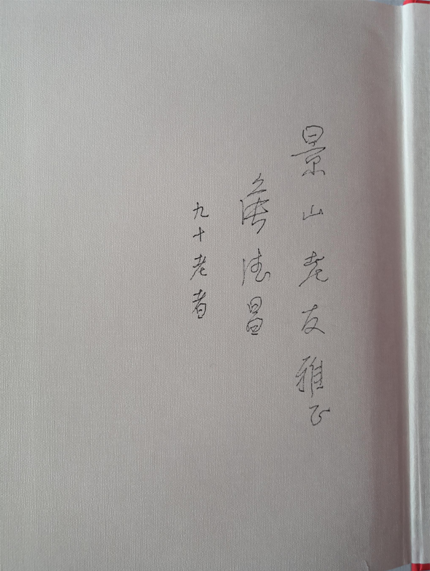 景山老友雅正
德昌
九十老者